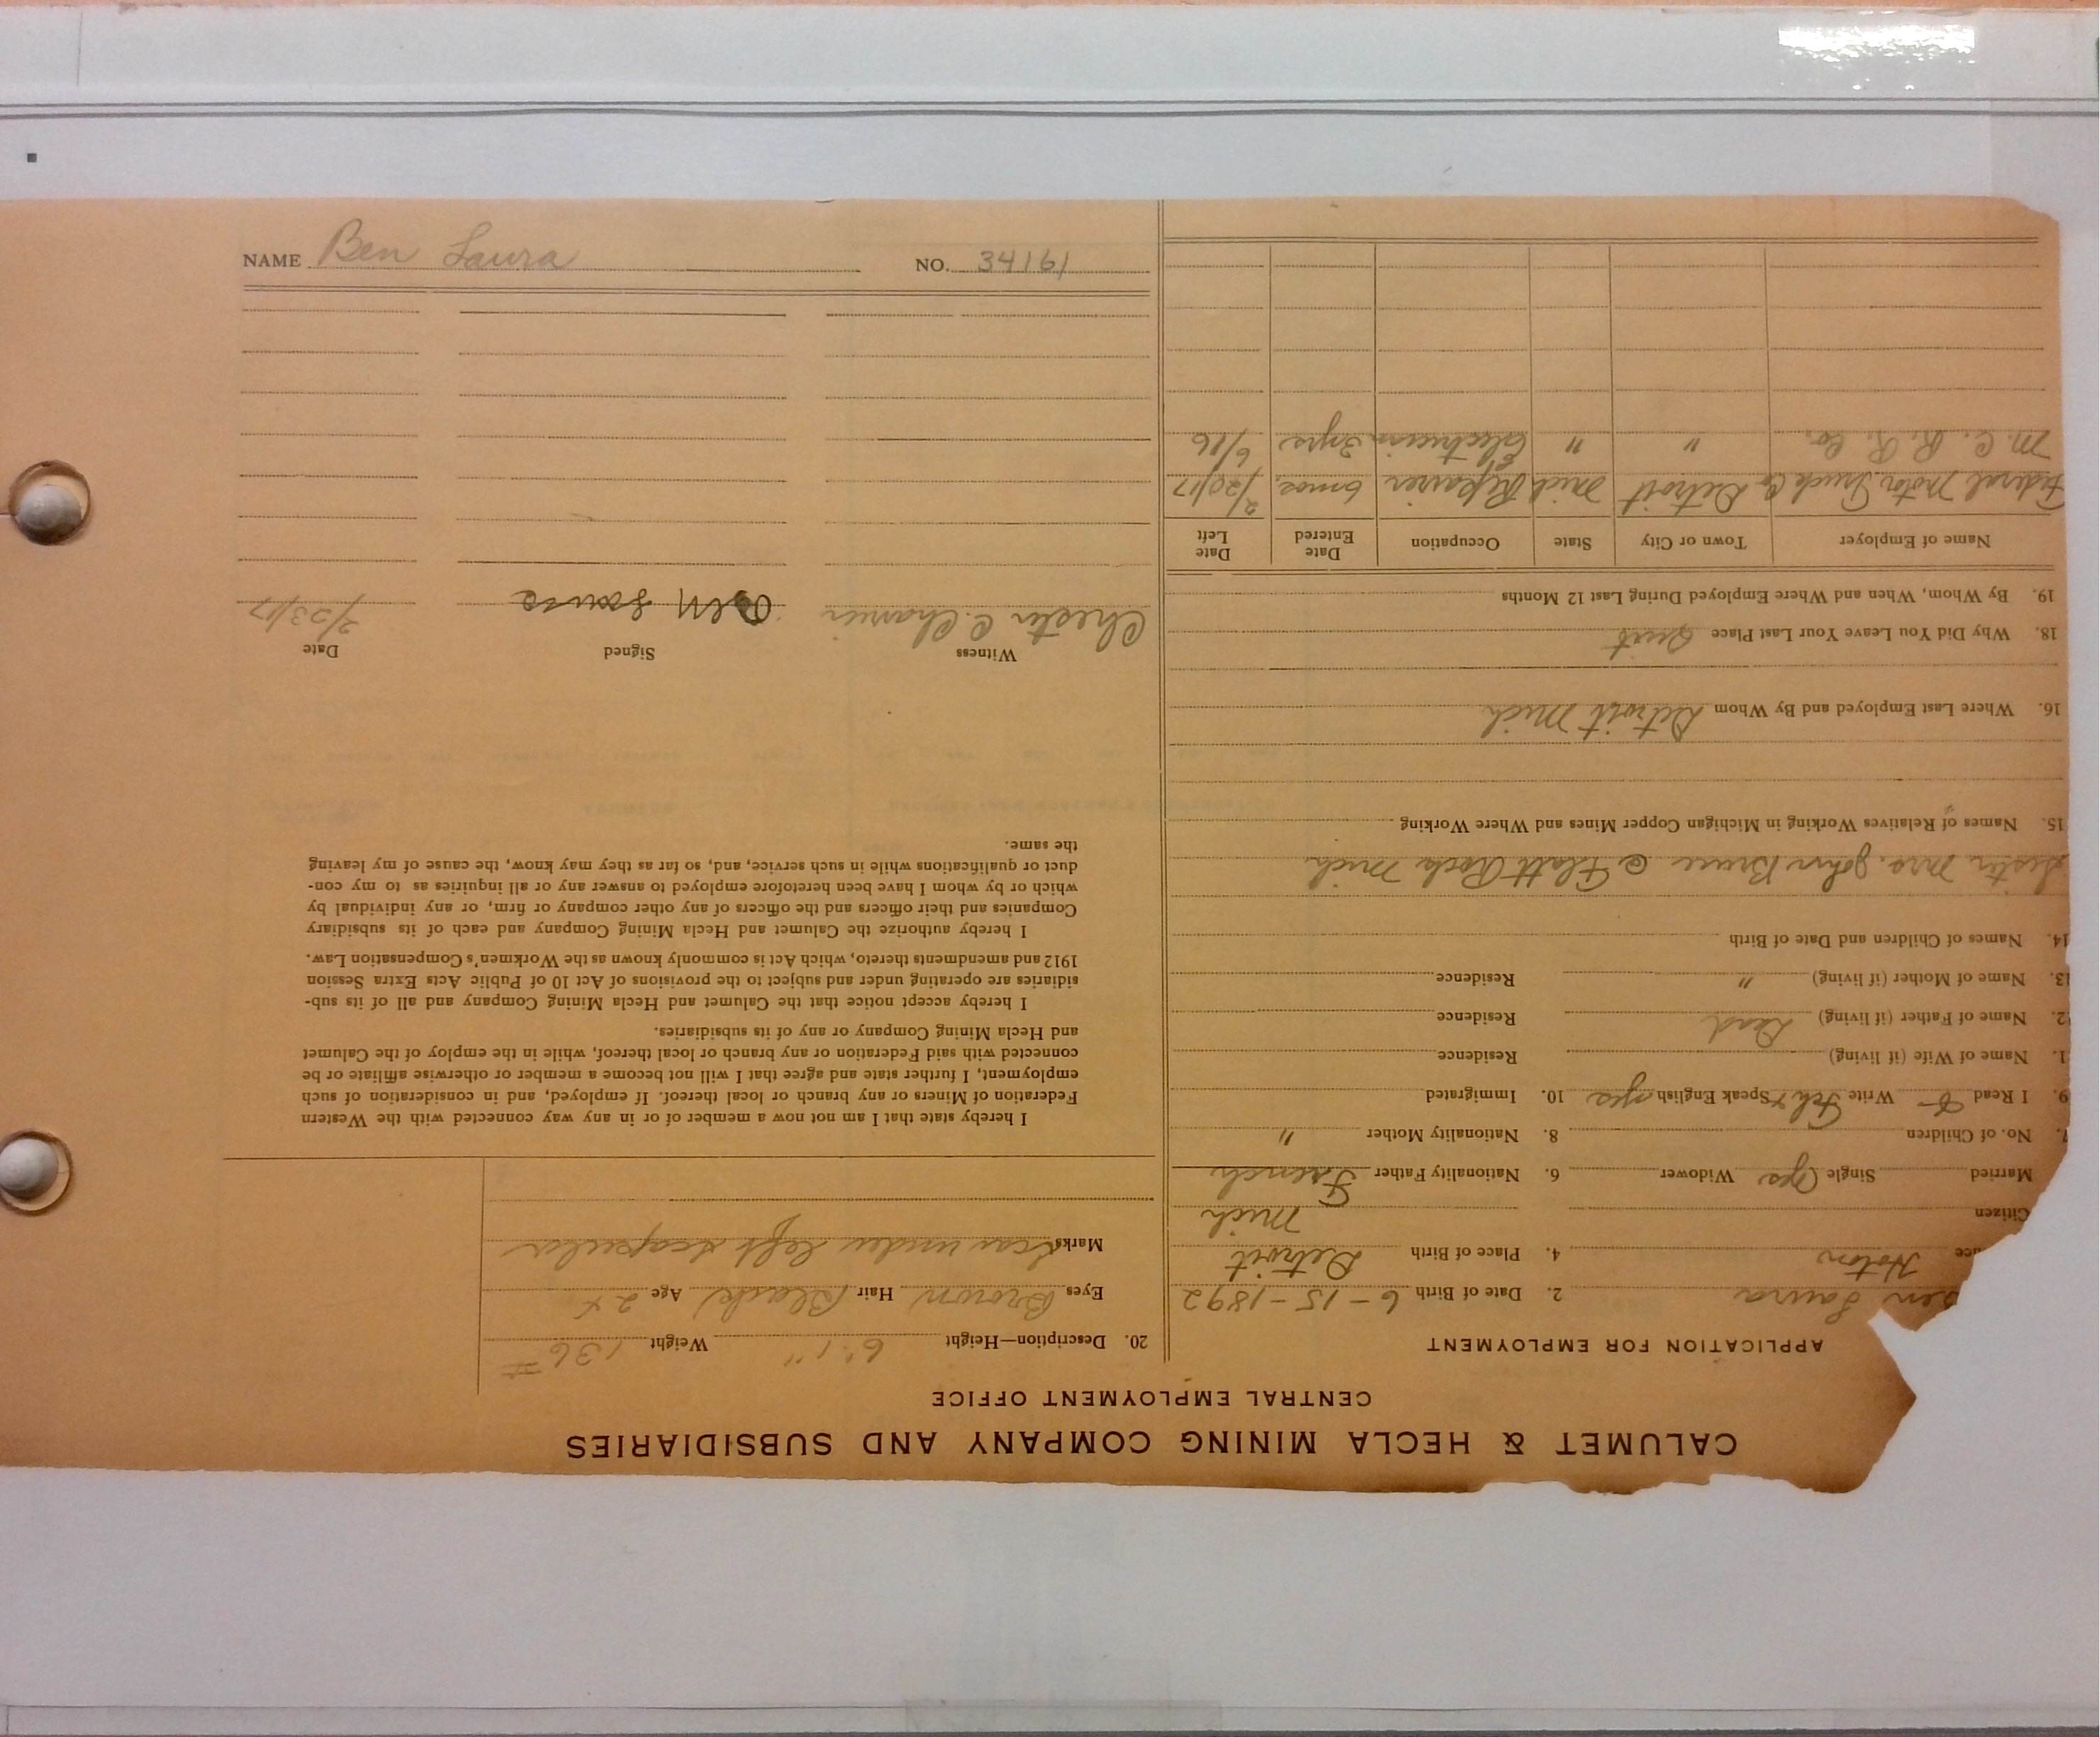 NAME Ben Laura NO. 34161
CALUMET & HECLA MINING COMPANY AND SUBSIDIARIES
CENTRAL EMPLOYMENT OFFICE
APPLICATION FOR EMPLOYMENT
Ben Laura 2. Date of Birth 6-15-1892
4. Place of Birth Detroit
Citizen Mich
Married Single yes Widower 6. Nationality Father French
7. No. of Children 8. Nationality Mother "
9. I Read Write Speak English yes 10. Immigrated
1. Name of Wife (if living) Residence
2. Name of Father (if living) Dead Residence
13. Name of Mother (if living) " Residence
14. Names of Children and Date of Birth
Sister Mrs. John Bruce @ Flatt Rock Mich
15. Names of Relatives Working in Michigan Copper Mines and Where Working
16. Where Last Employed and By Whom Detroit Mich
18. Why Did You Leave Your Last Place Quit
19. By Whom, When and Where Employed During Last 12 Months
Name of Employer Town or City State Occupation Date Entered Date Left
Federal Motor Truck Co Detroit Mich Repairer 6 mos. 2/20/17
M. C. R. R. Co. " " Electrician 3 yrs 6/16
20. Description—Height 6' 1" Weight 136 #
Eyes Brown Hair Black Age 24
Marks Scar under left
I hereby state that I am not now a member of or in any way connected with the Western
Federation of Miners or any branch or local thereof. If employed, and in consideration of such
employment, I further state and agree that I will not become a member or otherwise affiliate or be
connected with said Federation or any branch or local thereof, while in the employ of the Calumet
and Hecla Mining Company or any of its subsidiaries.
I hereby accept notice that the Calumet and Hecla Mining Company and all of its sub-
sidiaries are operating under and subject to the provisions of Act 10 of Public Acts Extra Session
1912 and amendments thereto, which Act is commonly known as the Workmen's Compensation Law.
I hereby authorize the Calumet and Hecla Mining Company and each of its subsidiary
Companies and their officers and the officers of any other company or firm, or any individual by
which or by whom I have been heretofore employed to answer any or all inquiries as to my con-
duct or qualifications while in such service, and, so far as they may know, the cause of my leaving
the same.
Witness Signed Date
Chester C. Ben Laura 2/23/17